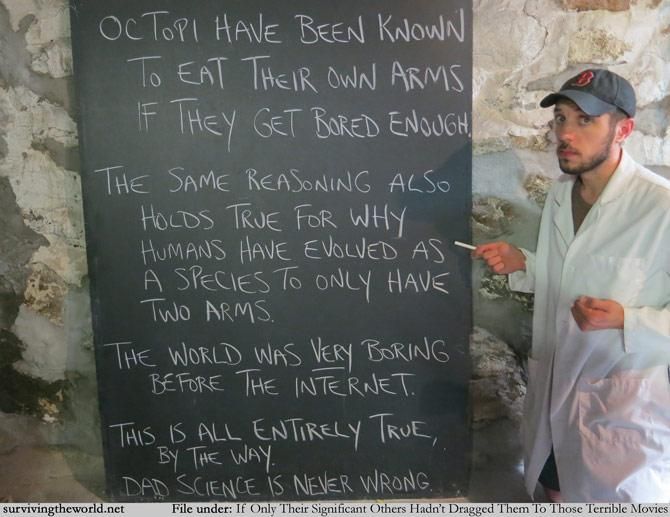 OCTOPI HAVE BEEN KNOWN
TO EAT THEIR OWN ARMS
IF THEY GET BORED ENOUGH.
THE SAME REASONING ALSO
HOLDS TRUE FOR WHY
HUMANS HAVE EVOLVED AS
A SPECIES TO ONLY HAVE
TWO ARMS.
THE WORLD WAS VERY BORING
BEFORE THE INTERNET.
THIS IS ALL ENTIRELY TRUE,
BY THE WAY.
DAD SCIENCE IS NEVER WRONG.
B
survivingtheworld.net File under: If Only Their Significant Others Hadn't Dragged Them To Those Terrible Movies